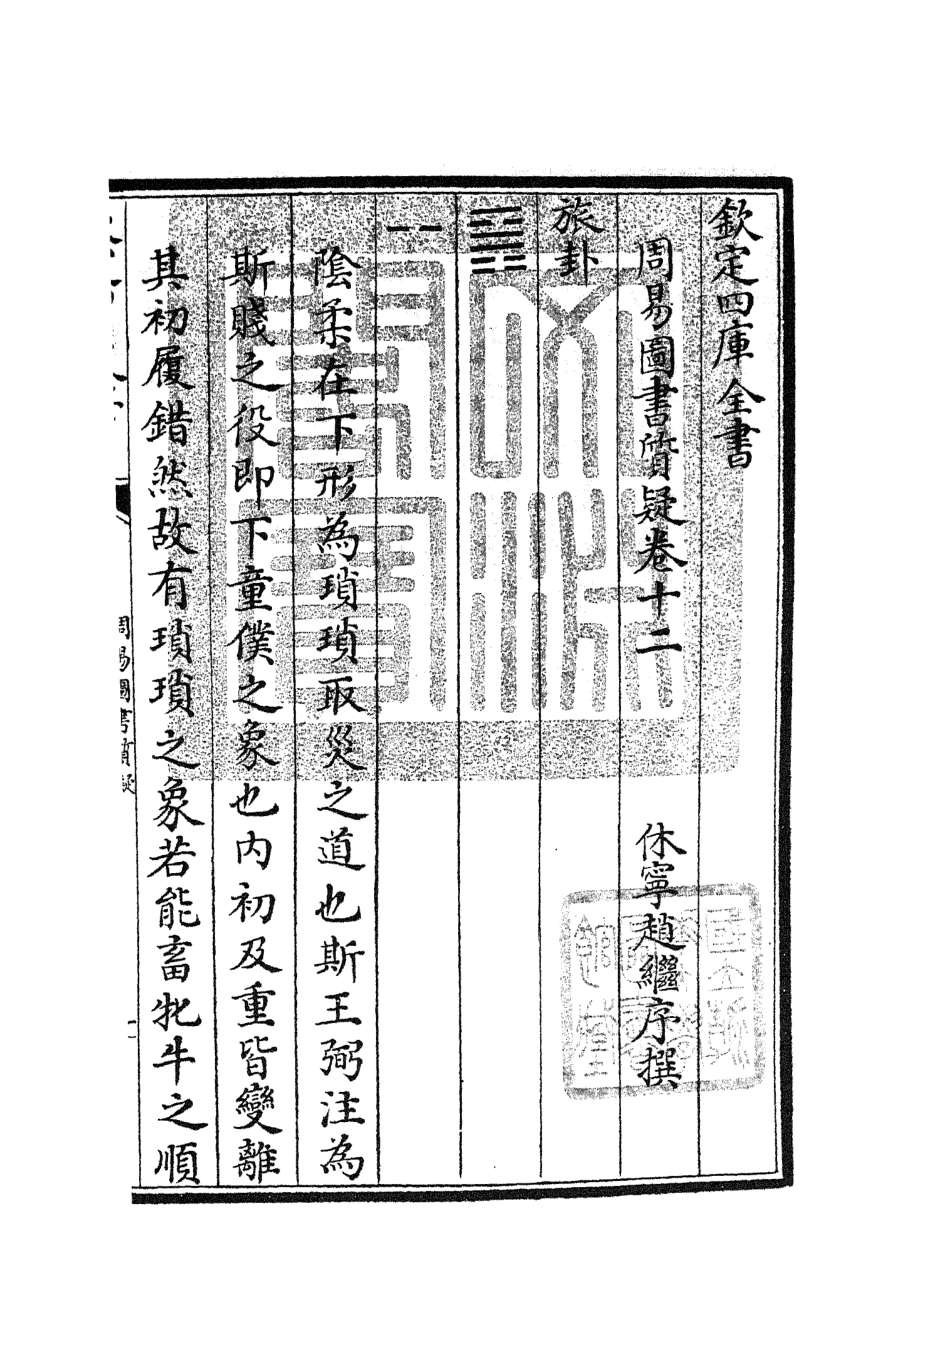 欽定四庫全書
周易圖書質疑卷十二
休寧趙繼序撰
旅卦
䷷
⚋
陰柔在下形為瑣瑣取災之道也斯王弼注為
斯賤之役即下童僕之象也内初及重皆變離
其初履錯然故有瑣瑣之象若能畜牝牛之順
周易圖書質疑